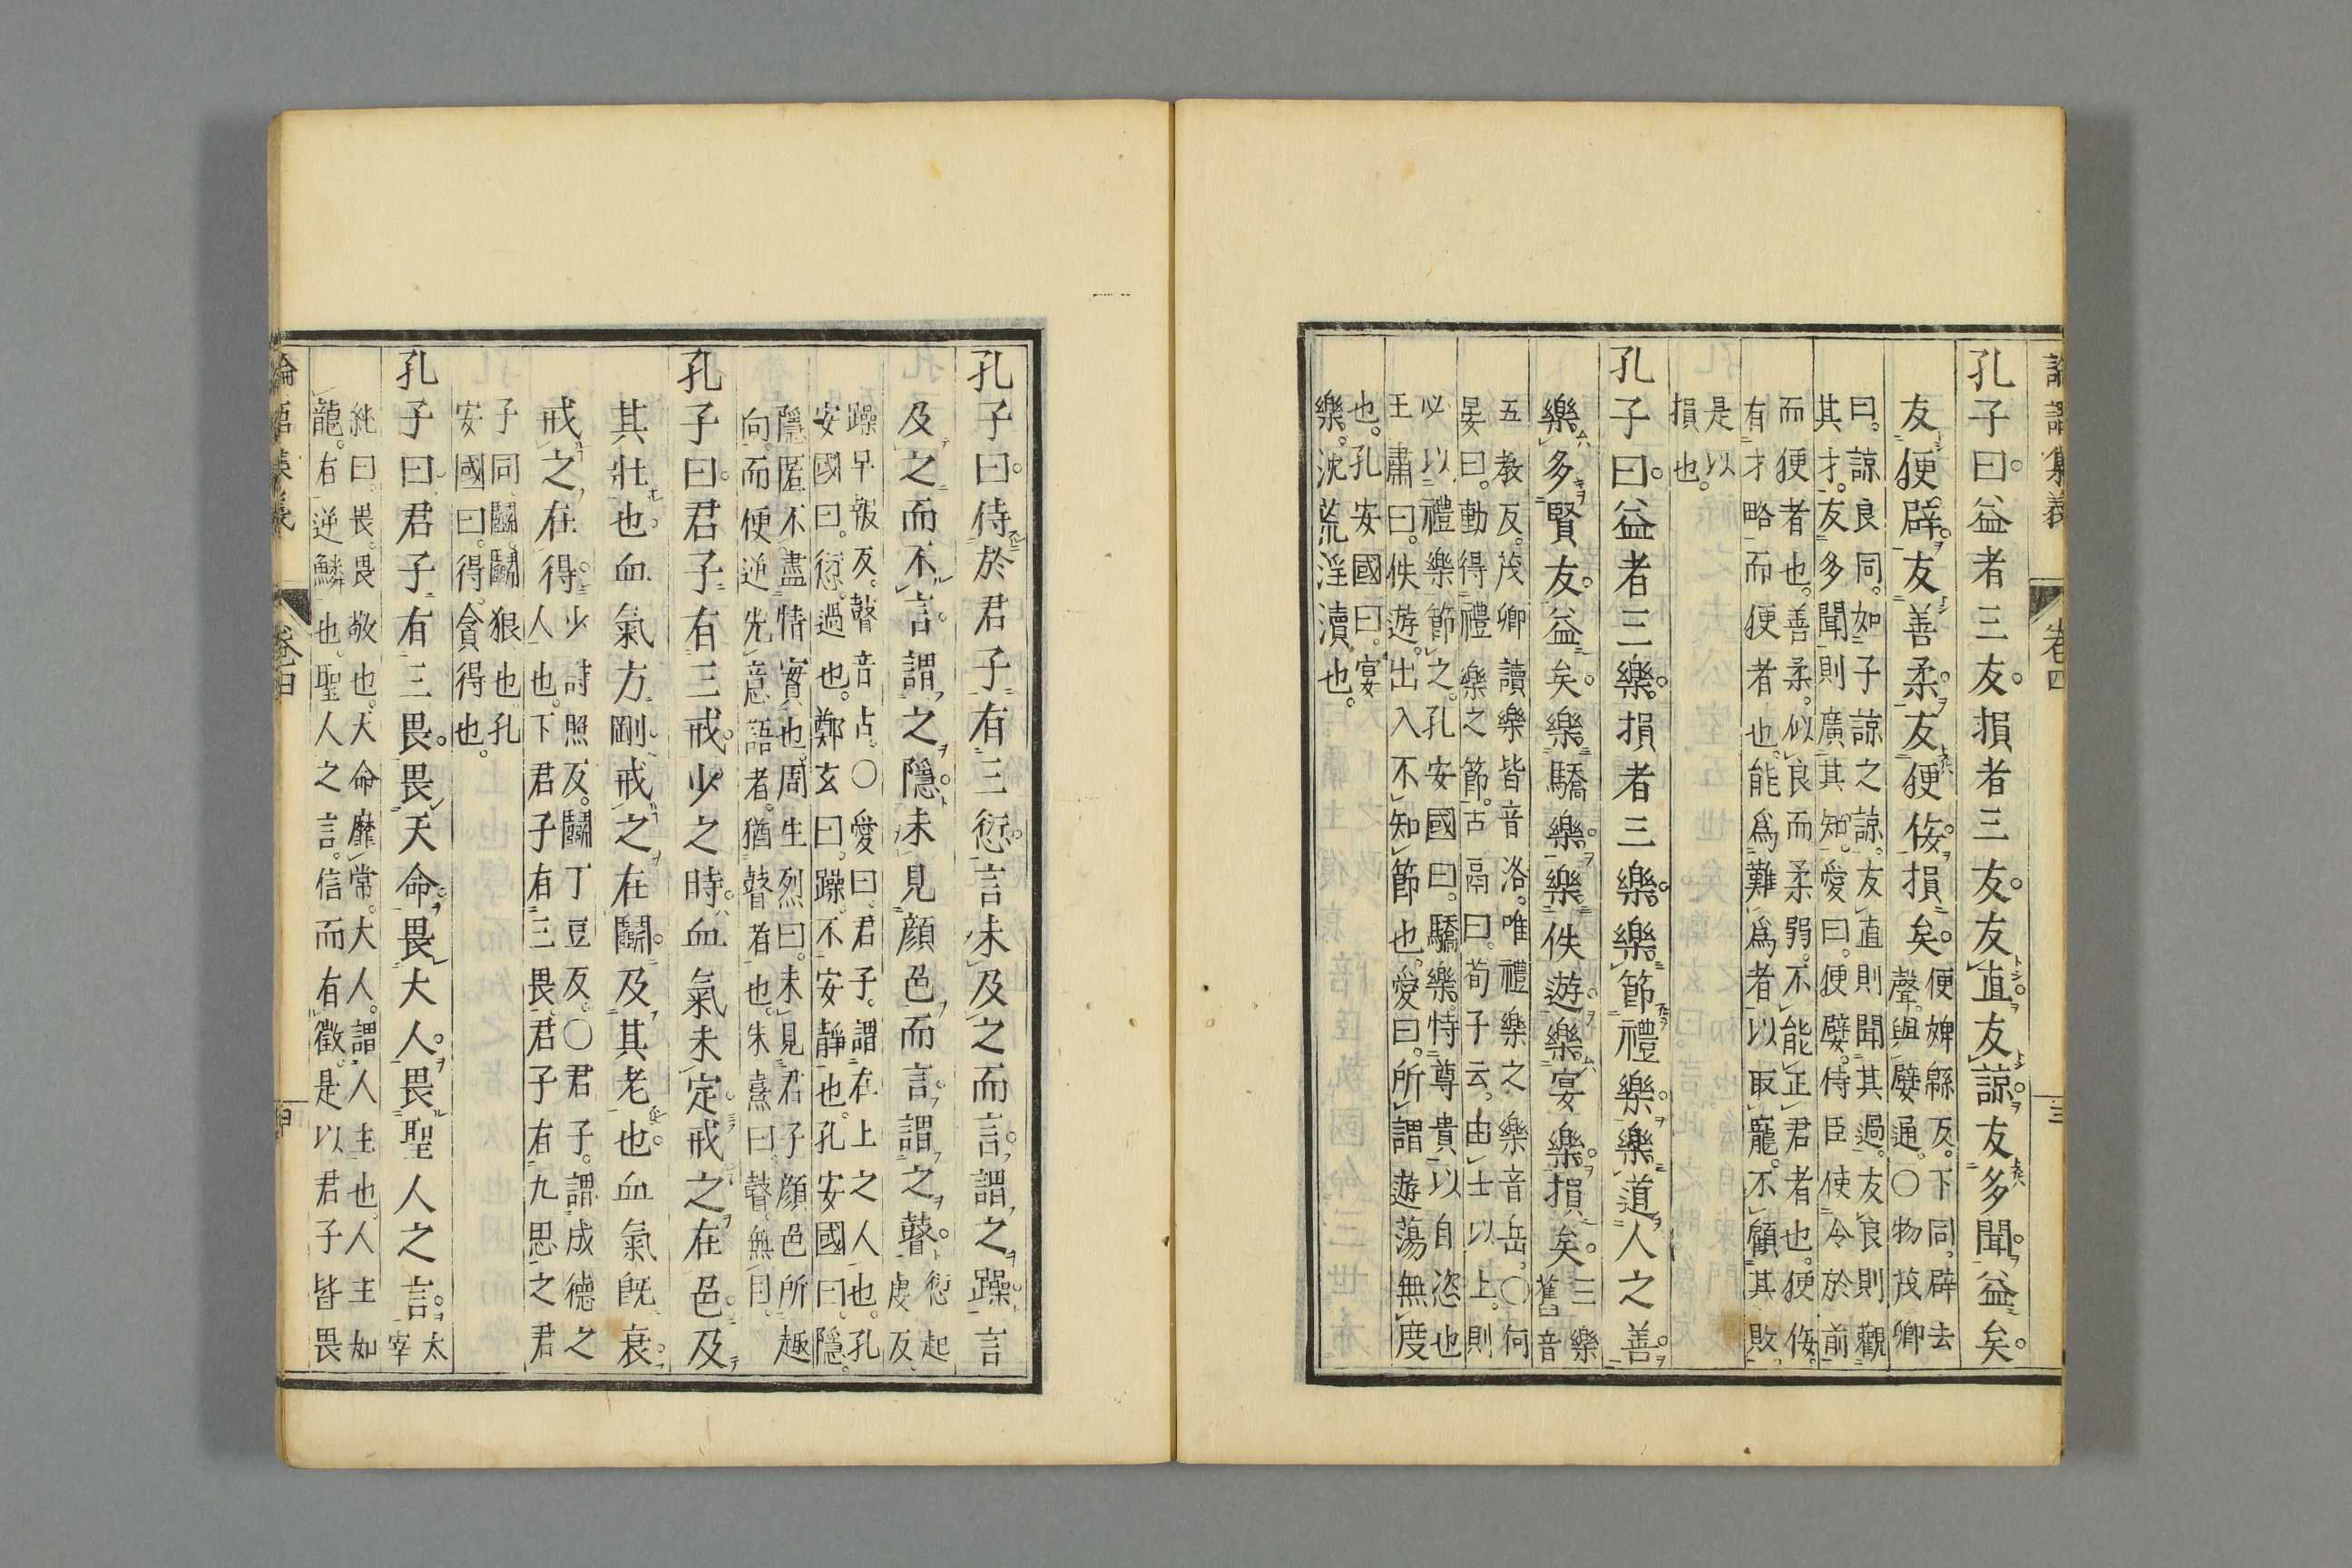 論語集義
卷四
三
孔子曰。益者三友。損者三友。友直。友諒。友多聞。益矣。
友便辟。友善柔。友便佞。損矣。
便婢緜反。下同。辟去
聲。與嬖通。○物茂卿
曰。諒良同。如子諒之諒。友直則聞其過。友良則觀
其才。友多聞則廣其知。愛曰。便嬖。侍臣使令於前
而便者也。善柔。似良而柔弱。不能正君者也。便佞。
有才略而便者也。能爲難爲者以取寵。不顧其敗。
是以
損也。
孔子曰。益者三樂。損者三樂。樂節禮樂。樂道人之善。
樂多賢友。益矣。樂驕樂。樂佚遊。樂宴樂。損矣。
三樂
舊音
五教反。茂卿讀樂皆音洛。唯禮樂之樂音岳。○何
晏曰。動得禮樂之節。古鬲曰。荀子云。由士以上。則
必以禮樂節之。孔安國曰。驕樂。恃尊貴以自恣也
王肅曰。佚遊。出入不知節也。愛曰。所謂遊蕩無度
也。孔安國曰。宴
樂。沈荒淫瀆也。
孔子曰。侍於君子有三愆。言未及之而言。謂之躁。言
及之而不言。謂之隱。未見顏色而言。謂之瞽。
愆起
虔反
躁早報反。瞽音古。○愛曰。君子。謂在上之人也。孔
安國曰。愆。過也。鄭玄曰。躁。不安靜也。孔安國曰。隱。
隱匿不盡情實也。周生烈曰。未見君子顏色所趣
向。而便逆先意語者。猶瞽者也。朱熹曰。瞽。無目。
孔子曰。君子有三戒。少之時。血氣未定。戒之在色。及
其壯也。血氣方剛。戒之在鬭。及其老也。血氣旣衰。
戒之在得。
少詩照反。鬭丁豆反。○君子。謂成德之
人也。下君子有三畏。君子有九思之君
子同。鬭。鬭狠也孔
安國曰。得。貪得也。
孔子曰。君子有三畏。畏天命。畏大人。畏聖人之言。
太
宰
純曰。畏。畏敬也。天命靡常。大人。謂人主也。人主如
龍。有逆鱗也。聖人之言。信而有徵。是以君子皆畏
論語集義
卷四